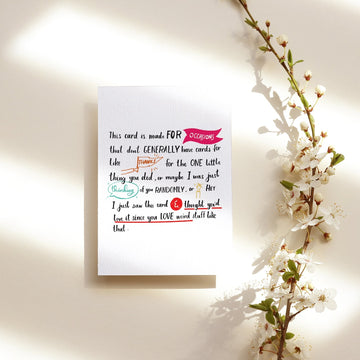 This card is made FOR OCCASIONS
that don't GENERALLY have cards for
like THANKS for the ONE little
thing you did, or maybe I was just
thinking of you RANDOMLY, or
I just saw the card & thought you'd
love it since you LOVE weird stuff like
that.